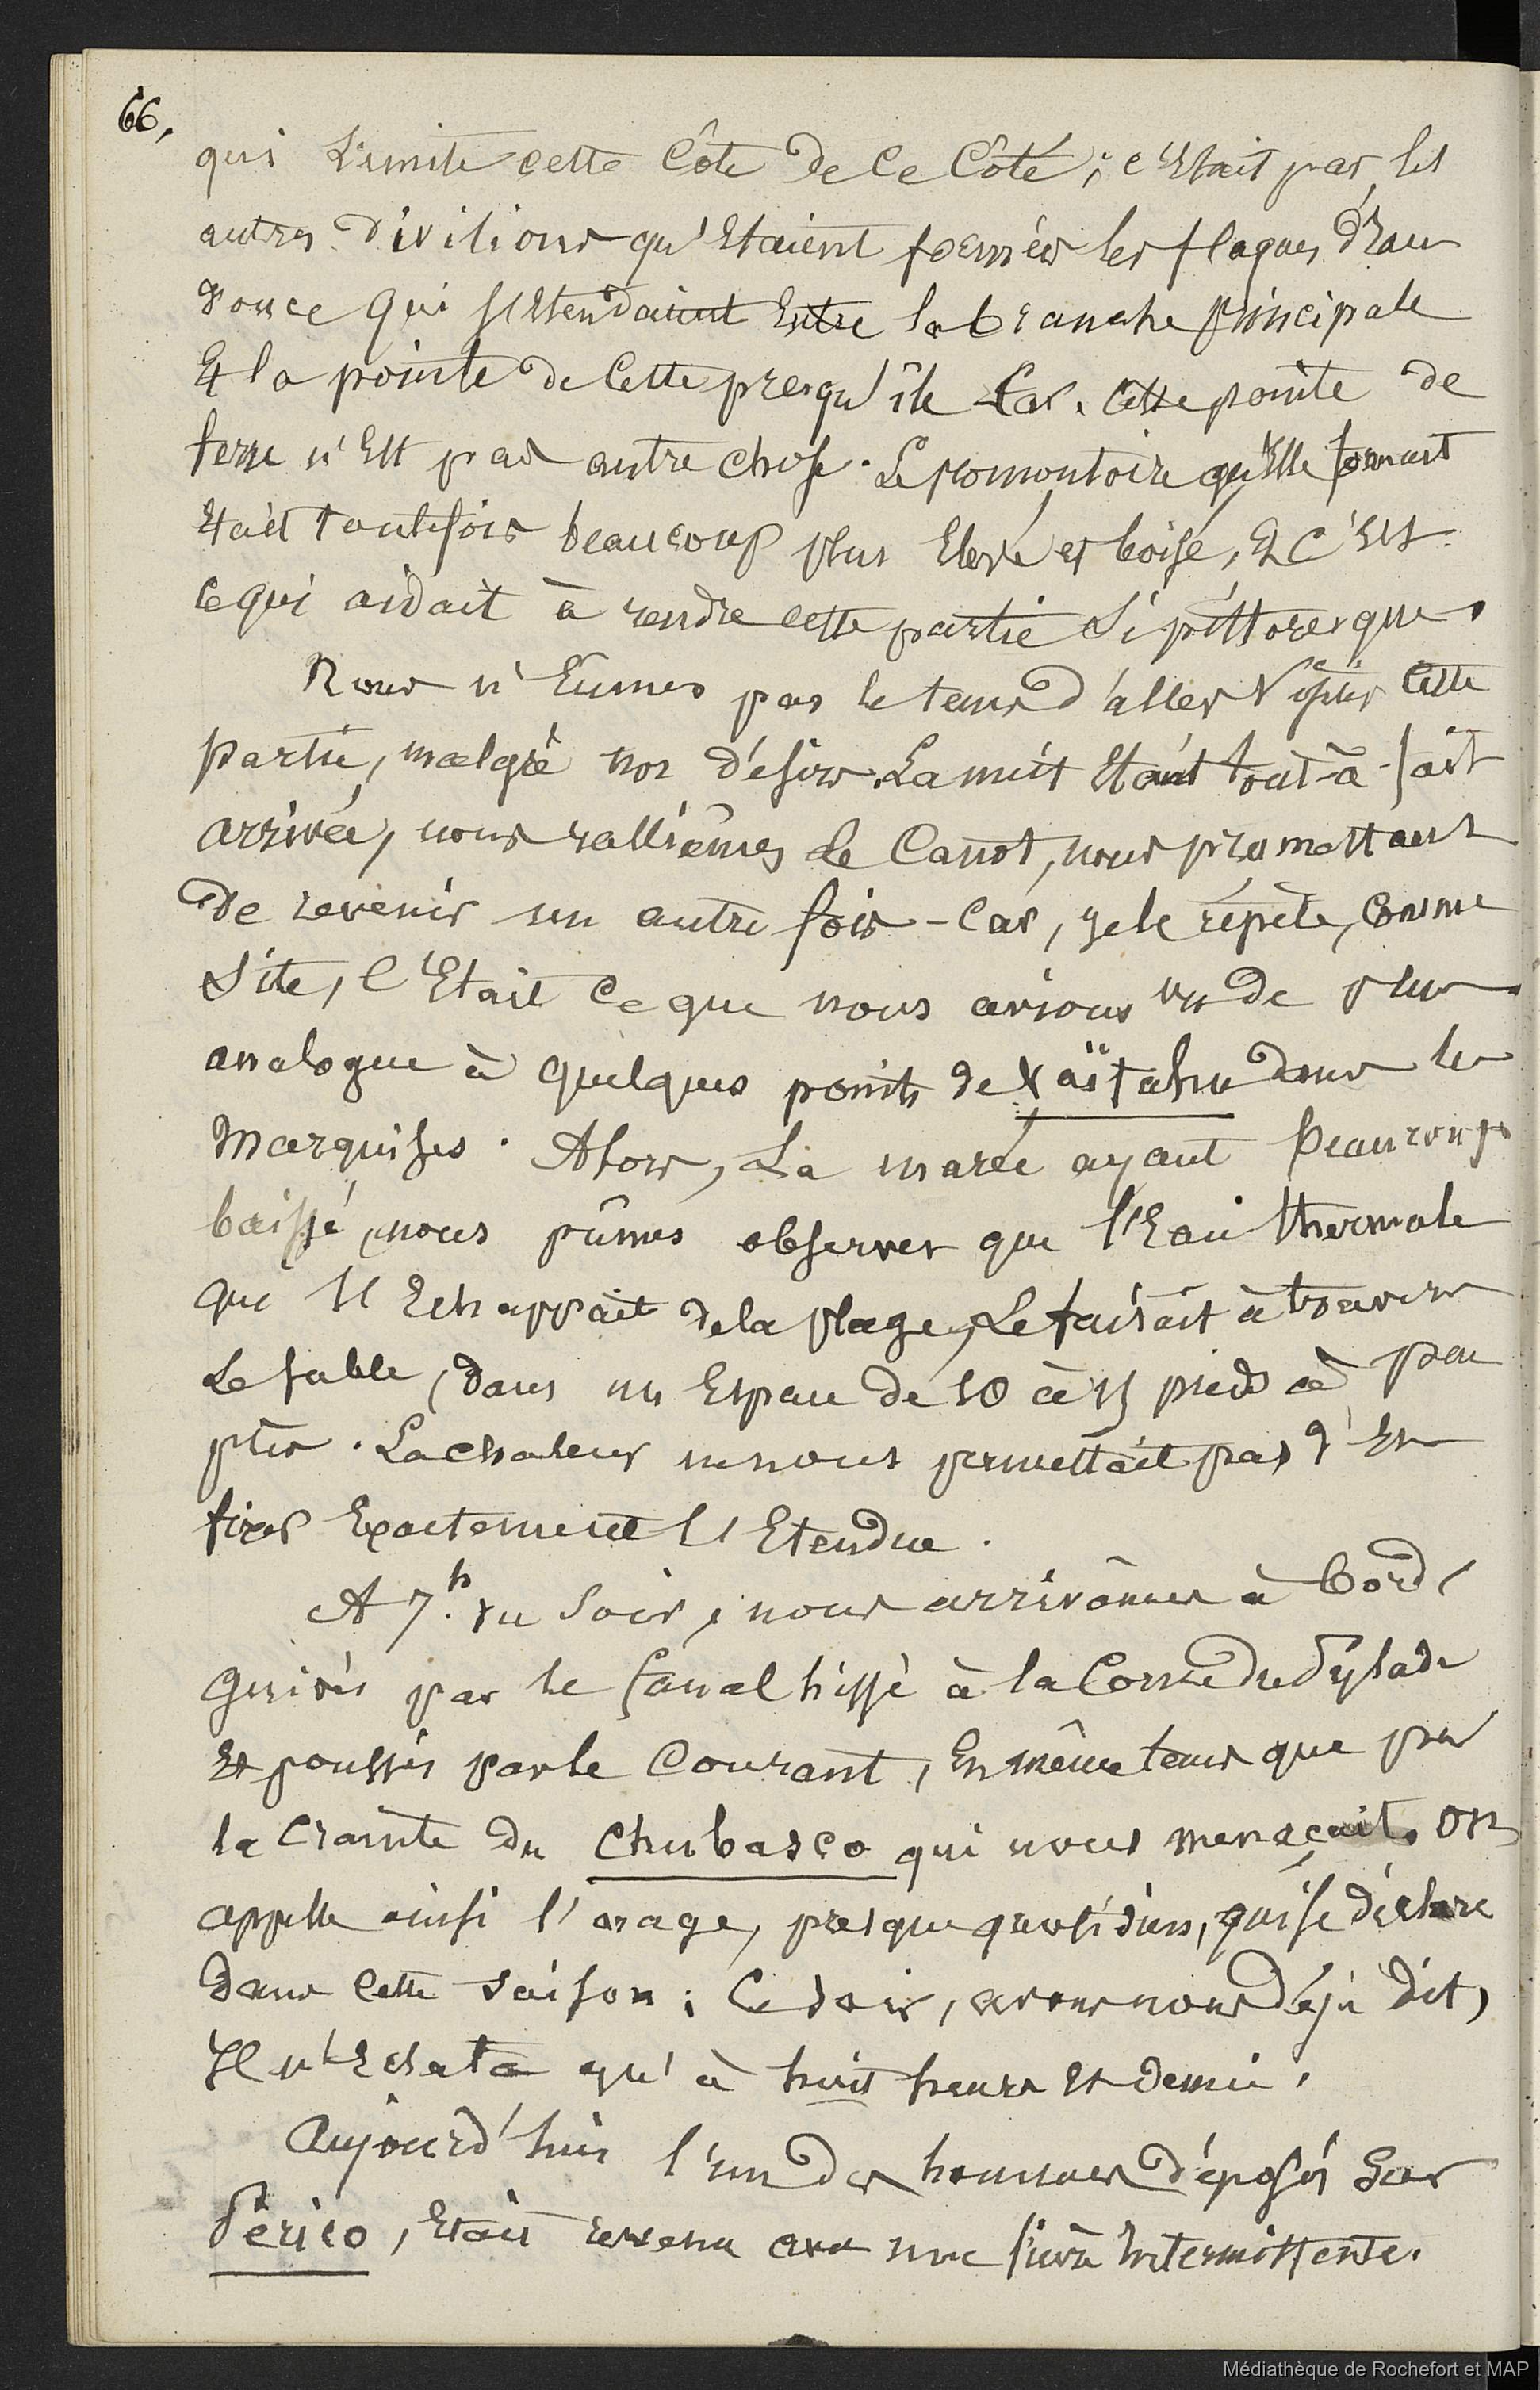 66,
qui limite cette Côte de ce Côté; c'Etait par les
autres divisions qu'Etaient formées les flaques d'Eau
douce qui s'Etendaient Entre la branche principale
Et la pointe de Cette presqu'île Car. Cette pointe de
terre n'Est pas autre chose. Le promontoire qu'Elle formait
Etait toutefois beaucoup plus Elevé et boisé, Et C'Est
ce qui aidait à rendre cette partie si pittoresque.
Nous n'Eûmes pas le tems d'aller visiter Cette
partie, malgré nos désirs. La nuit Etant tout-à-fait
arrivée, nous ralliâmes le Canot, nous promettant
de revenir un autre fois - Car, je le répète, Comme
Site, C'Etait Ce que nous avions vu de plus
analogue à quelques points de Vaïtahu dans les
Marquises. Alors, La marée ayant beaucoup
baissé, nous pûmes observer que l'Eau thermale
qui s'Echappait de la plage, Le faisait à travers
Le sable, dans un Espace de 10 à 15 pieds à peu
près. La chaleur ne nous permettait pas d'En
fixer Exactement l'Etendue.
A 7.h du Soir, nous arrivâmes à bord,
guidés par le fanal hissé à la Corne du Pylade
Et poussés par le Courant, En même tems que par
la Crainte du Chubasco qui nous menaçait. On
appelle ainsi l'orage, presque quotidien, qui se déclare
dans Cette saison; Ce soir, avons nous déjà dit,
Il n'Eclata qu'à huit heures Et demie.
Aujourd'hui l'un des hommes déposés sur
Périco, Etait revenu avec une fièvre Intermittente.
Médiathèque de Rochefort et MAP